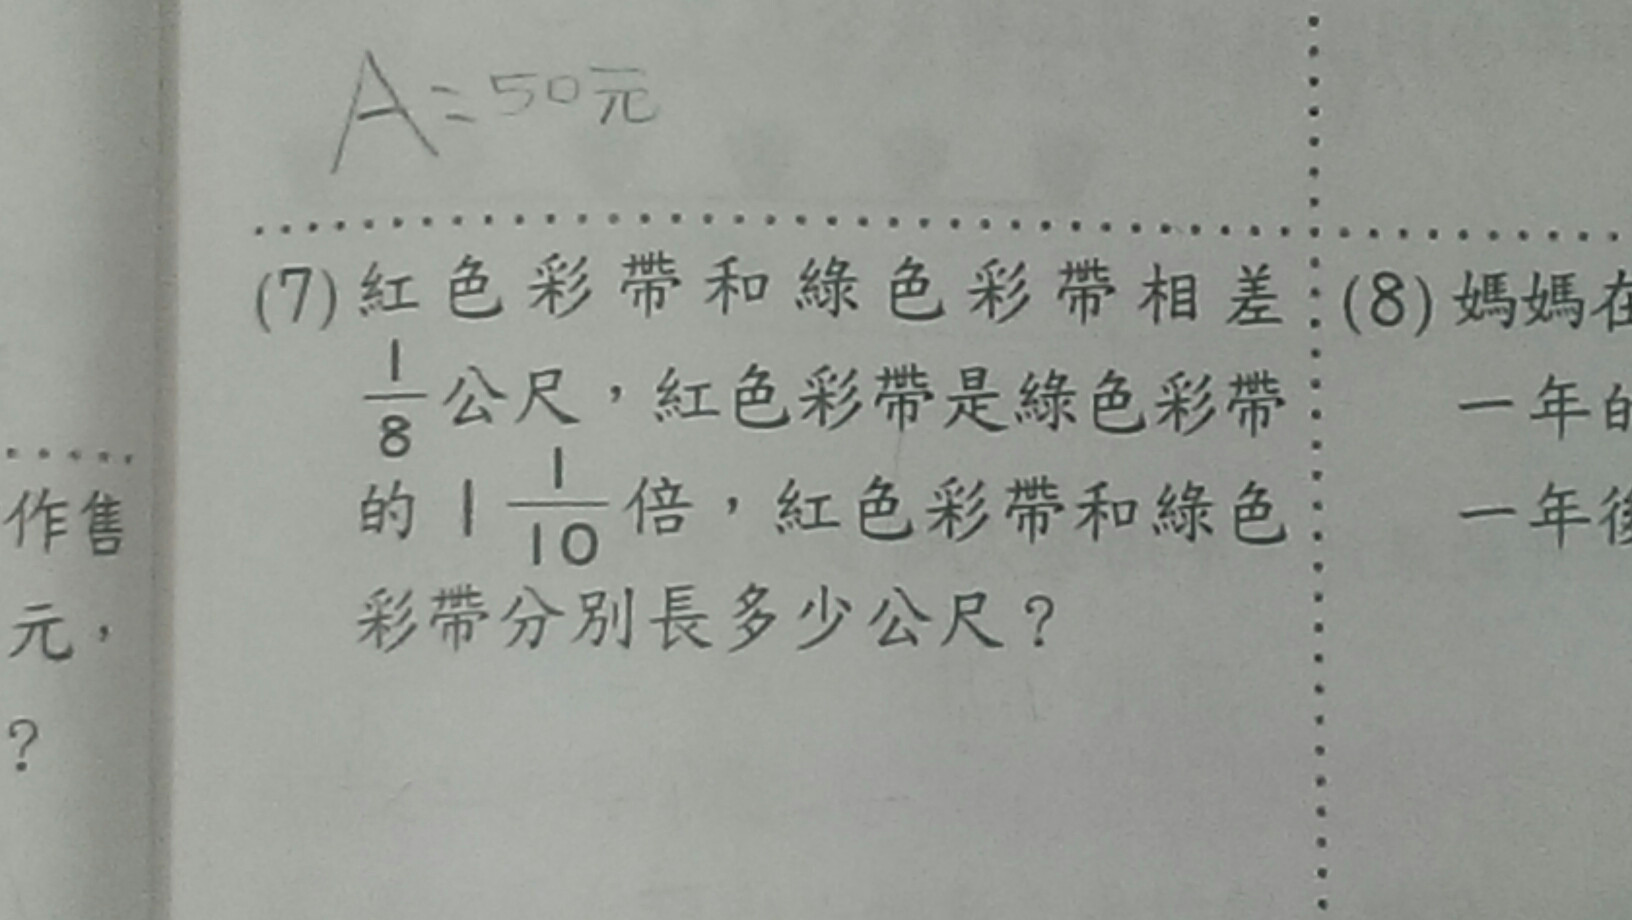 A=50元
(7)紅色彩帶和綠色彩帶相差
1/8公尺，紅色彩帶是綠色彩帶
的1 1/10倍，紅色彩帶和綠色
彩帶分別長多少公尺？
(8)媽媽在
一年的
一年後
作售
元，
？